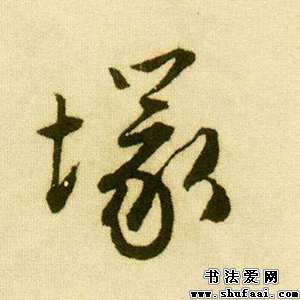 塚
书法爱网
www.shufaai.com